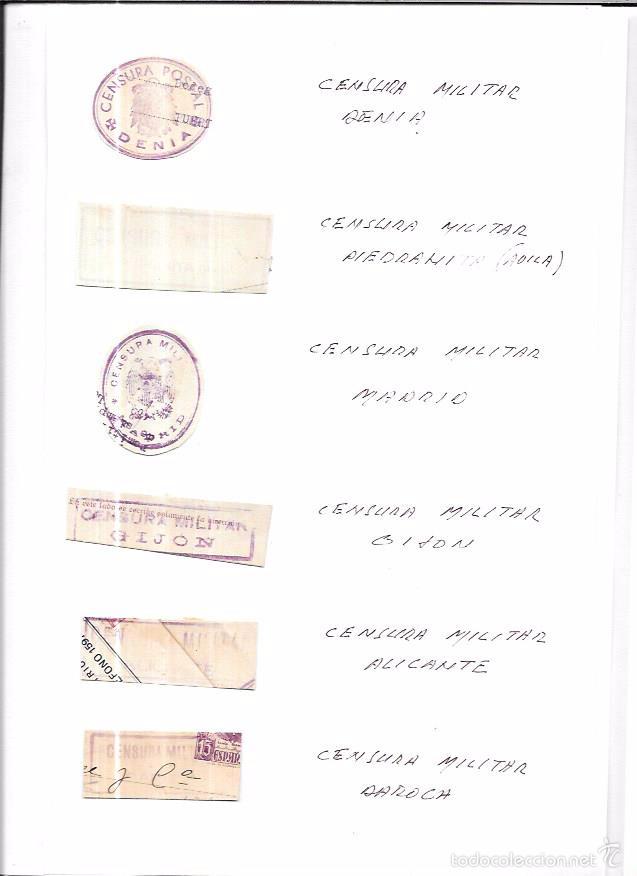 CENSURA POSTAL
DENIA
CENSURA MILITAR
DENIA
CENSURA MILITAR
PIEDRAHITA (AVILA)
CENSURA MILI
MADRID
CENSURA MILITAR
MADRID
En este lado se escribe solamente la
CENSURA MILITAR
GIJON
CENSURA MILITAR
GIJON
MILITAR
RIO
EFONO 159
CENSURA MILITAR
ALICANTE
CENSURA MILI
15
ESPAÑA
y Cª
CENSURA MILITAR
DAROCA
todocoleccion.net